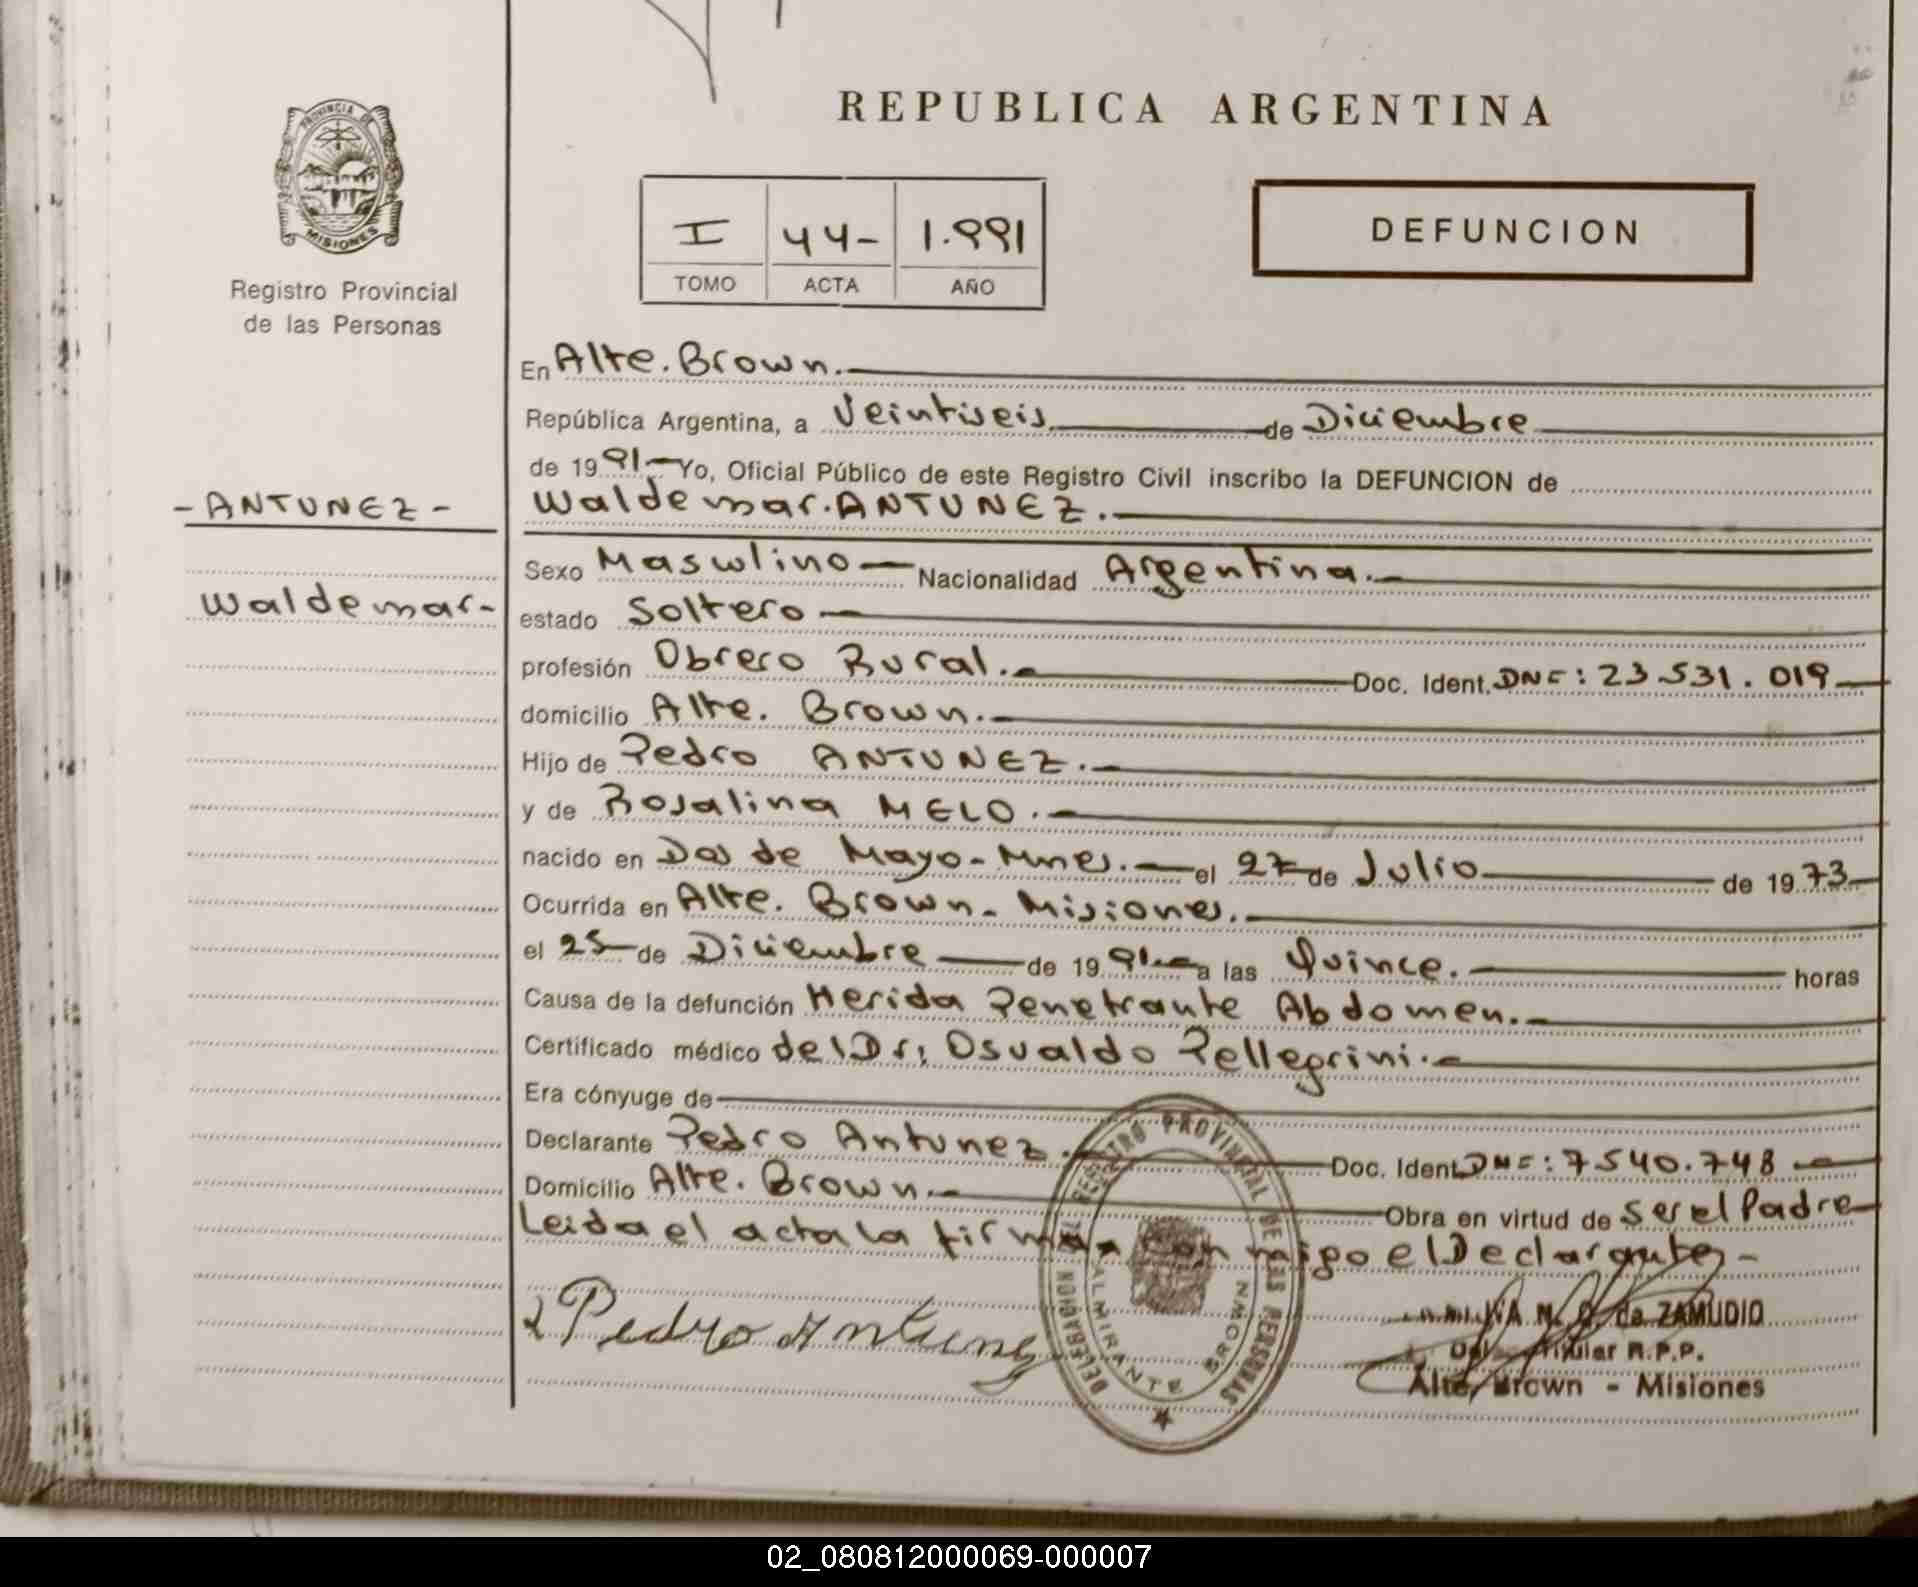 REPUBLICA ARGENTINA
PROVINCIA DE
MISIONES
Registro Provincial
de las Personas
I 44- 1.991
TOMO ACTA AÑO
DEFUNCION
En Alte. Brown.
República Argentina, a Veintiseis de Diciembre
de 1991 Yo, Oficial Público de este Registro Civil inscribo la DEFUNCION de
-ANTUNEZ-
Waldemar. ANTUNEZ.
Sexo Masculino Nacionalidad Argentina.
Waldemar-
estado Soltero
profesión Obrero Rural. Doc. Ident. DNI: 23.531.019
domicilio Alte. Brown.
Hijo de Pedro ANTUNEZ.
y de Rosalina MELO.
nacido en Dos de Mayo-Mnes. el 27 de Julio de 1973
Ocurrida en Alte. Brown - Misiones.
el 25 de Diciembre de 1991 a las Quince. horas
Causa de la defunción Herida Penetrante Abdomen.
Certificado médico del Dr; Osvaldo Pellegrini.
Era cónyuge de
Declarante Pedro Antunez. Doc. Ident. DNI: 7540.748
Domicilio Alte. Brown. Obra en virtud de ser el Padre
Leida el acta la firman conmigo el Declarante, -
Pedro Antunez
REGISTRO PROVINCIAL DE LAS PERSONAS
DELEGACION
ALMIRANTE BROWN
de ZAMUDIO
Titular R.P.P.
Alte, Brown - Misiones
02_080812000069-000007